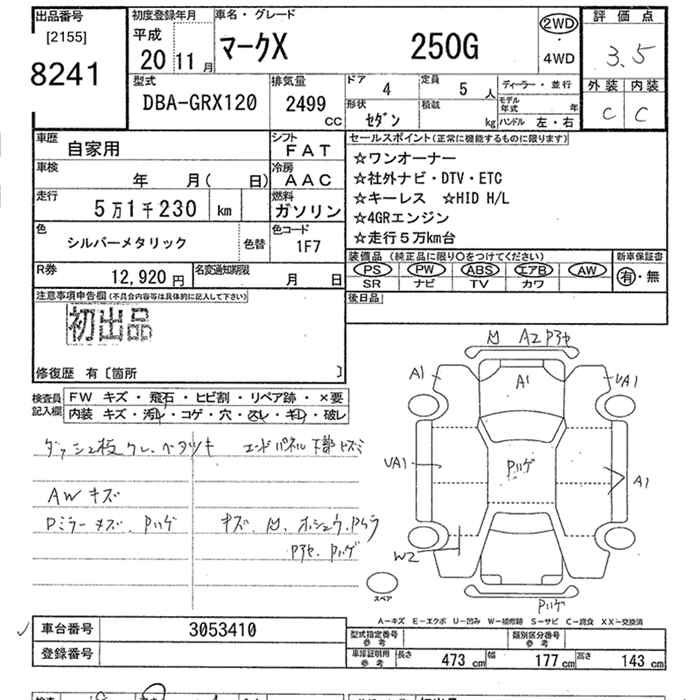 出品番号
[2155]
8241
初度登録年月
平成
20 11月
車名・グレード
マークX 250G
2WD
・
4WD
評価点
3.5
外装 内装
C C
型式
DBA-GRX120
排気量
2499
CC
ドア
4
定員
5 人
形状
セダン
積載
kg
ディーラー・並行
モデル年式 年
ハンドル 左・右
車歴
自家用
シフト
FAT
車検
年 月( 日)
冷房
AAC
走行
5万1千230 km
燃料
ガソリン
色
シルバーメタリック
色替
色コード
1F7
R券
12,920円
名変通知期限
月 日
セールスポイント(正常に機能するものに限ります)
☆ワンオーナー
☆社外ナビ・DTV・ETC
☆キーレス ☆HID H/L
☆4GRエンジン
☆走行5万km台
装備品(純正品に限り○をつけてください)
新車保証書
PS PW ABS エアB AW
SR ナビ TV カワ
有・無
後日品
注意事項申告欄(不具合内容等は具体的に記入して下さい)
初出品
修復歴 有〔箇所 〕
検査員記入欄
FW キズ・飛石・ヒビ割・リペア跡・×要
内装 キズ・汚れ・コゲ・穴・スレ・キレ・破レ
ダッシュ板クレ、ベタツキ
エンドパネル下部キズミ
AWキズ
Dミラーキズ、Pハゲ
キズ、凹、ホシュウ、Pムラ
Pアセ、Pハゲ
凹 A2 Pアセ
A1
A1
UA1
UA1
Pハゲ
A1
W2
Pハゲ
スペア
A-キズ E-エクボ U-凹み W-補修跡 S-サビ C-腐食 XX-交換済
車台番号
3053410
登録番号
型式指定番号
参考
類別区分番号
参考
車庫証明用
参考
長さ 473 cm 幅 177 cm 高さ 143 cm